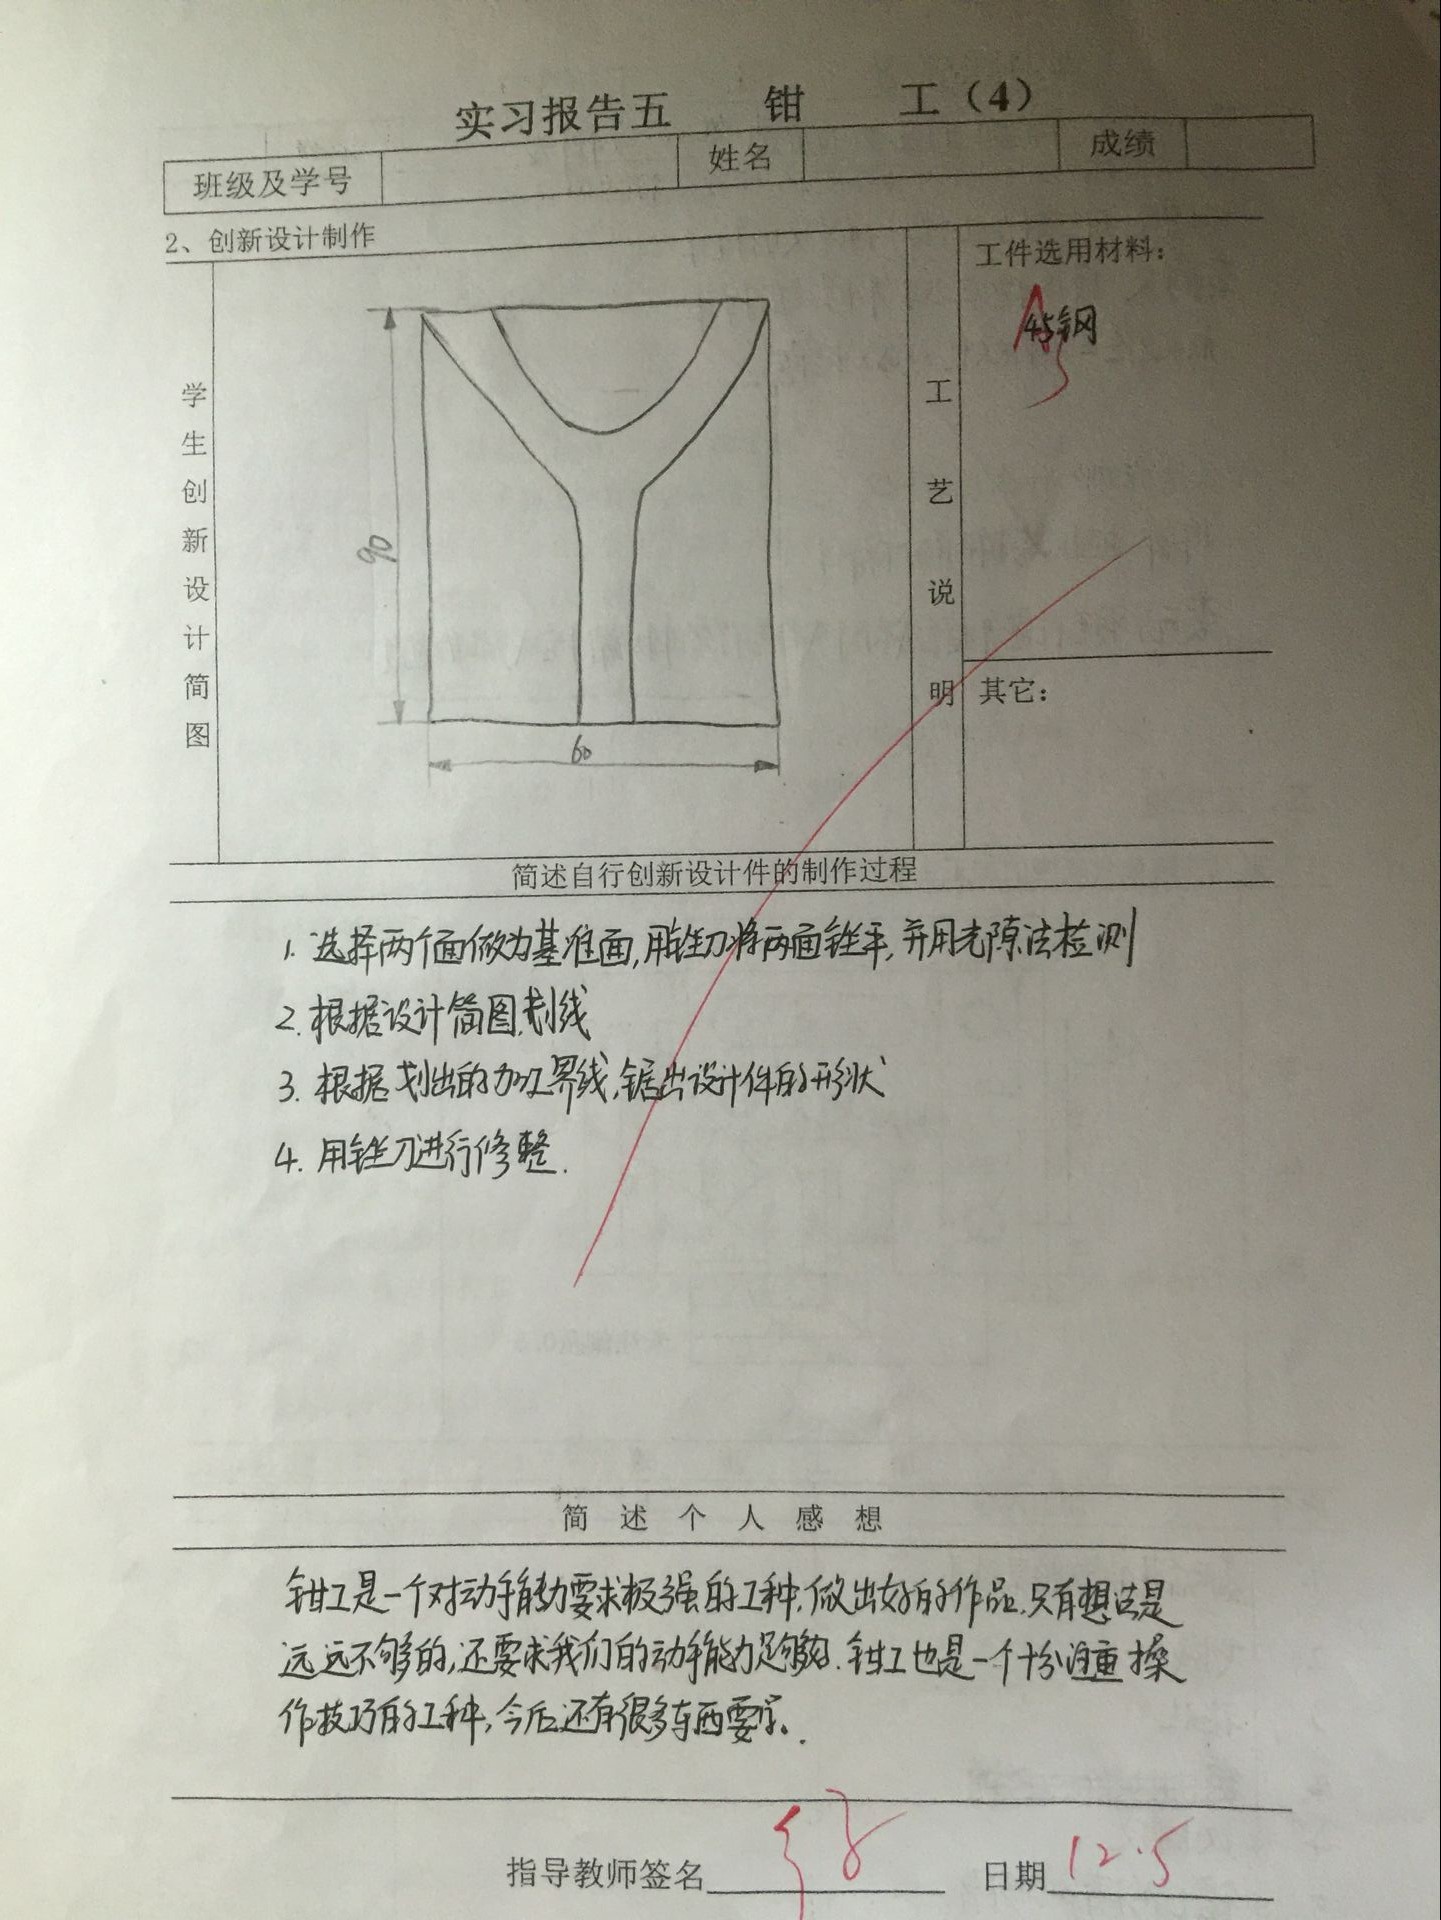 实习报告五 钳 工（4）
班级及学号 姓名 成绩
2、创新设计制作
学生创新设计简图
90
60
工艺说明
工件选用材料：
45钢
其它：
简述自行创新设计件的制作过程
1. 选择两个面做为基准面,用锉刀将两面锉平,并用光隙法检测
2. 根据设计简图,划线
3. 根据划出的加工界线,锯出设计件的形状
4. 用锉刀进行修整.
简 述 个 人 感 想
钳工是一个对动手能力要求极强的工种,做出好的作品,只有想法是
远远不够的,还要求我们的动手能力足够. 钳工也是一个十分注重操
作技巧的工种,今后还有很多东西要学.
指导教师签名 日期 12.5